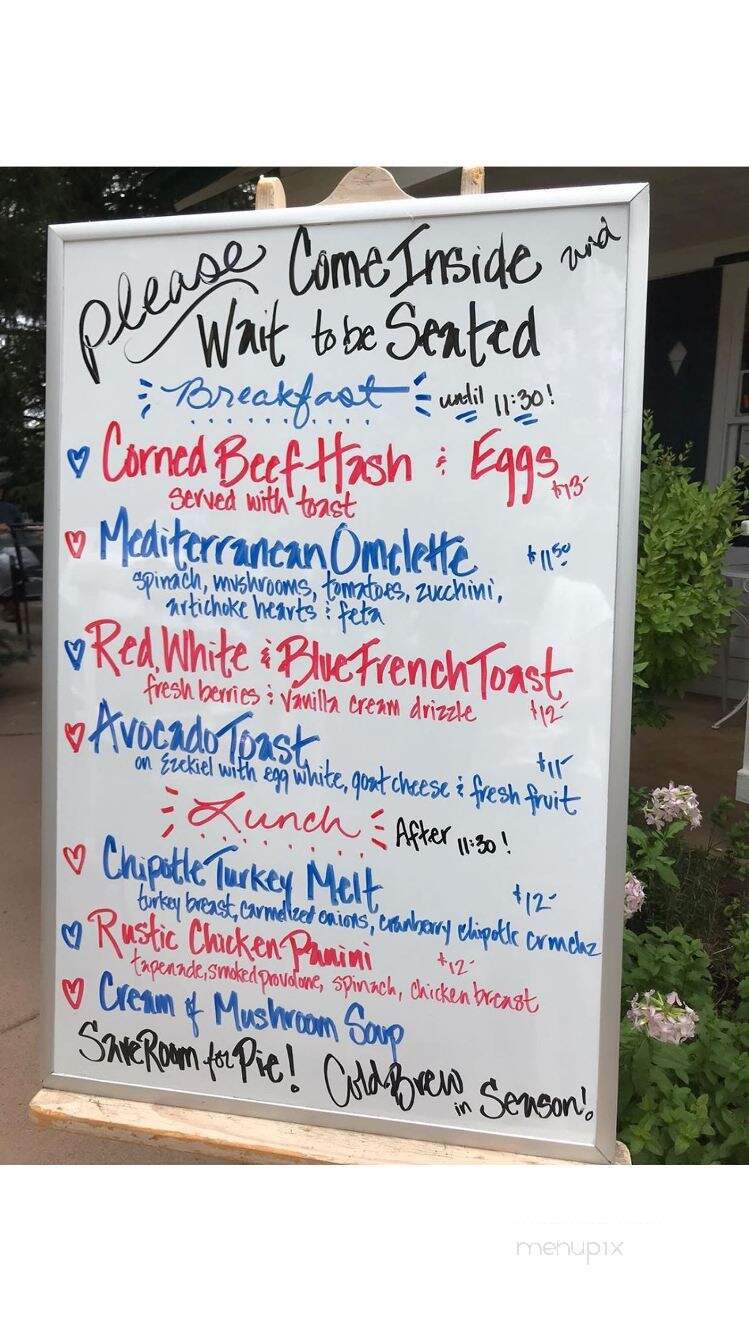 Please Come Inside and
Wait to be Seated
Breakfast until 11:30!
Corned Beef Hash & Eggs $13-
served with toast
Mediterranean Omelette $11.50
spinach, mushrooms, tomatoes, zucchini,
artichoke hearts & feta
Red, White & Blue French Toast
fresh berries & vanilla cream drizzle $12-
Avocado Toast $11-
on Ezekiel with egg white, goat cheese & fresh fruit
Lunch After 11:30!
Chipotle Turkey Melt $12-
turkey breast, carmelized onions, cranberry chipotle
Rustic Chicken Panini $12-
tapenade, smoked provolone, spinach, chicken breast
Cream of Mushroom Soup
Save Room for Pie! Cold Brew in Season!
menupix